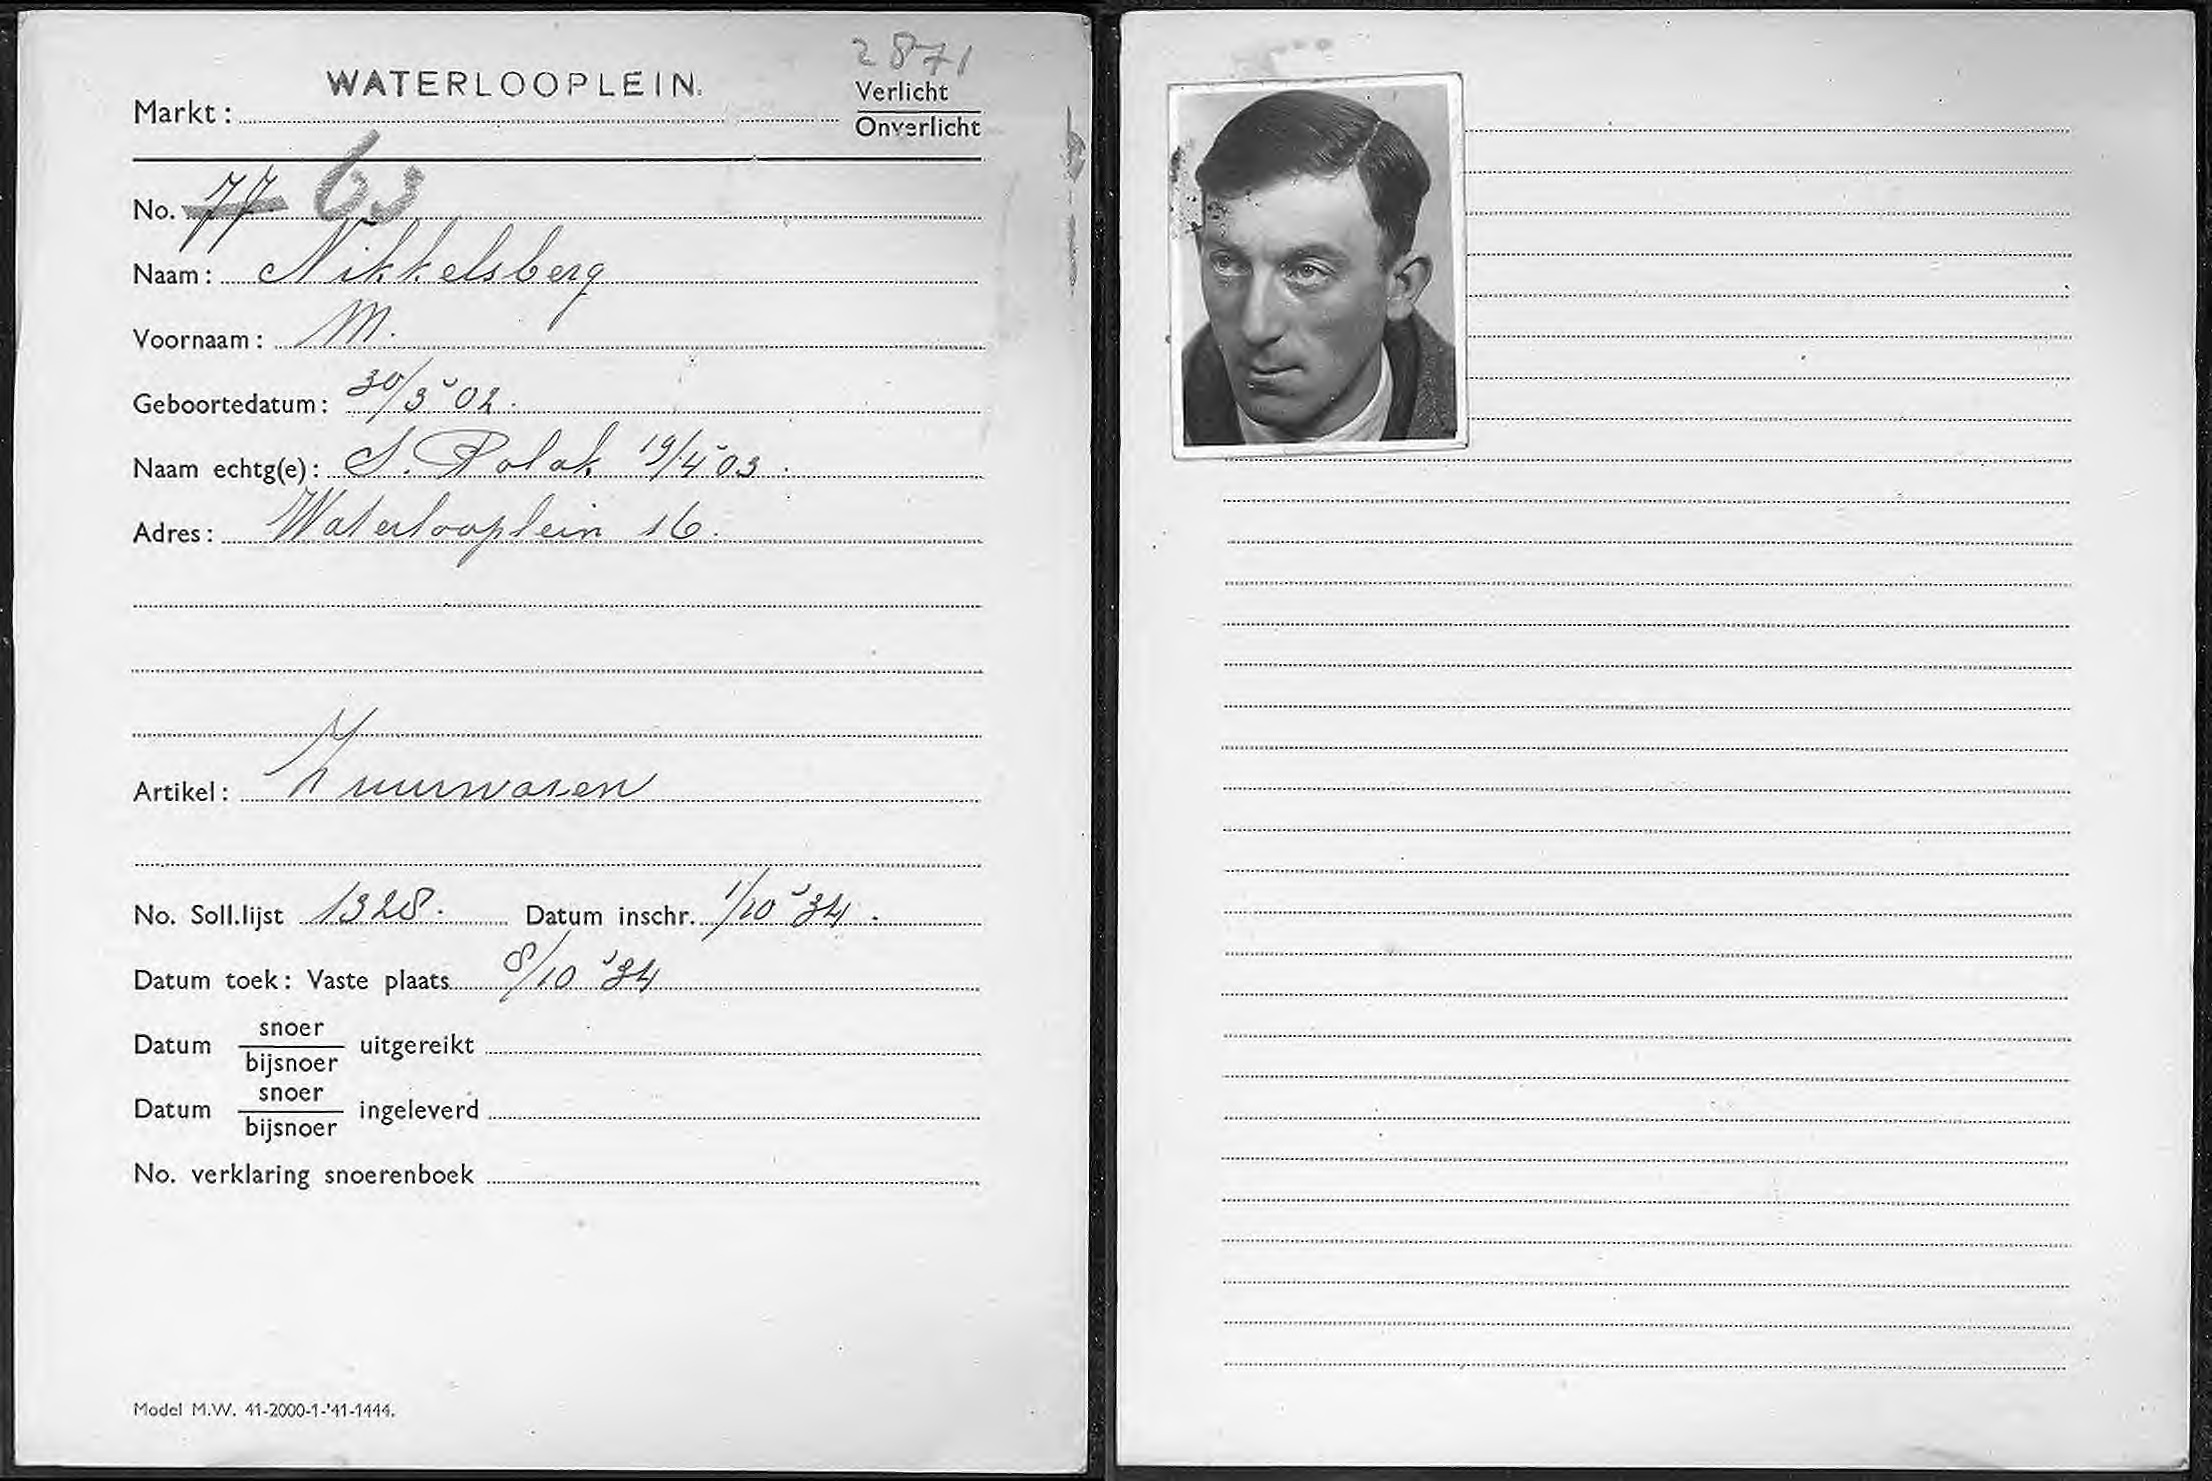 2871
WATERLOOPLEIN.
Markt:
Verlicht
Onverlicht
No. 77 63
Naam: Nikkelsberg
Voornaam: M.
Geboortedatum: 30/3 '02.
Naam echtg(e): S. Polak 19/4 '03.
Adres: Waterlooplein 16.
Artikel: Zuurwaren
No. Soll.lijst 1328. Datum inschr. 1/10 '34.
Datum toek: Vaste plaats 8/10 '34
Datum snoer/bijsnoer uitgereikt
Datum snoer/bijsnoer ingeleverd
No. verklaring snoerenboek
Model M.W. 41-2000-1-'41-1444.